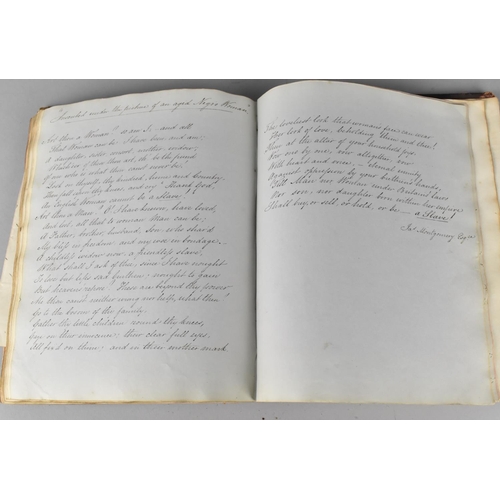 Inscribed under the picture of an aged Negro Woman
Art thou a Woman? so am I; and all
That Woman can be, I have been, or am;
A daughter, sister, consort, mother, widow;
Whiche'er of these thou art, O be the friend
Of one who is what thou canst never be!
Look on thyself, thy kindred, home, and Country,
Then fall upon thy knees, and cry "Thank God,
An English Woman cannot be a Slave"!
Art thou a Man? O! I have known, have loved,
And lost, all that to woman Man can be;
A Father, brother, husband, Son, who shared
My bliss in freedom, and my woe in bondage.
A childless widow now, a friendless slave,
What shall I ask of thee, since I have nought
To lose but life's sad burthen; nought to gain
But heaven's repose? these are beyond thy power
Me thou canst neither wrong nor help; what then?
Go to the bosom of thy family,
Gather thy little children round thy knees,
Gaze on their innocence; their clear full eyes,
All fix'd on thine; and in their mother, mark
The loveliest look that woman's face can wear
Her look of love, beholding them and thee!
Then at the altar of your household joys,
Vow one by one, vow altogether, vow
With heart and voice, eternal enmity
Against oppression by your brethren's hands;
Till Man nor Woman under Britain's laws
Nor son, nor daughter born within her empire,
Shall buy, or sell, or hold, or be a Slave!
Jas. Montgomery Esqre